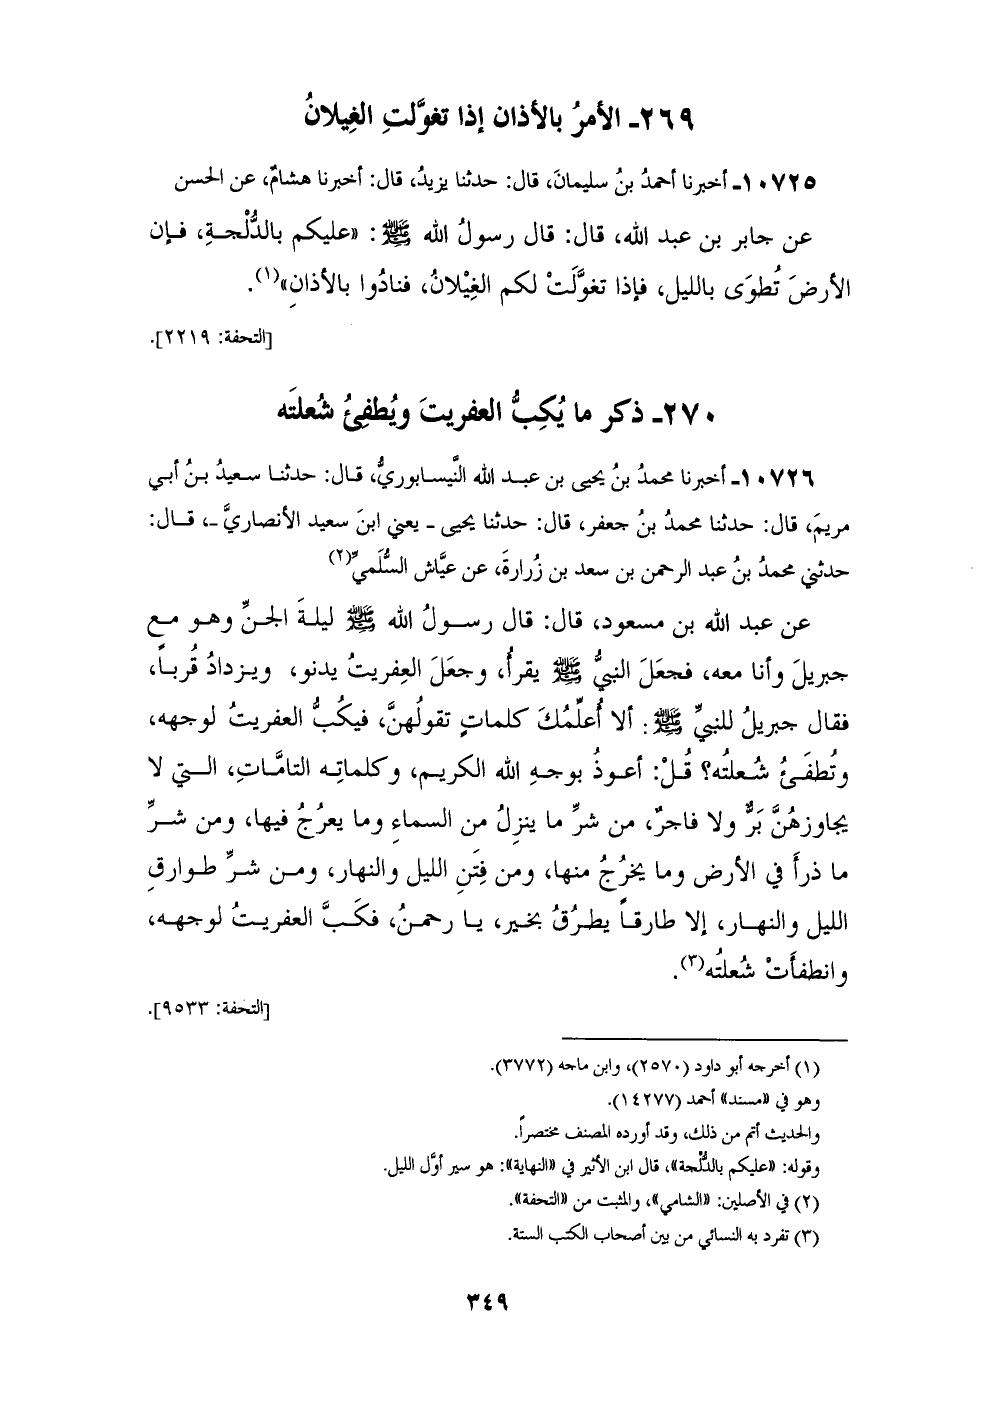 ٢٦٩ـ الأمرُ بالأذان إذا تغوَّلتِ الغِيلانُ
١٠٧٢٥ـ أخبرنا أحمدُ بنُ سليمانَ، قال: حدثنا يزيدُ، قال: أخبرنا هشامٌ، عن الحسن
عن جابر بن عبد الله، قال: قال رسولُ الله ﷺ: «عليكم بالدُّلْجةِ، فإن
الأرضَ تُطوَى بالليل، فإذا تغوَّلَتْ لكم الغِيْلانُ، فنادُوا بالأذانِ»(١).
[التحفة: ٢٢١٩].
٢٧٠ـ ذكر ما يُكِبُّ العفريتَ ويُطفِئُ شُعلتَه
١٠٧٢٦ـ أخبرنا محمدُ بنُ يحيى بن عبد الله النَّيسابوريُّ، قال: حدثنا سعيدُ بنُ أبي
مريمَ، قال: حدثنا محمدُ بنُ جعفر، قال: حدثنا يحيى ـ يعني ابنَ سعيد الأنصاريَّ ـ، قال:
حدثني محمدُ بنُ عبد الرحمن بن سعد بن زُرارةَ، عن عيَّاش السُّلَميِّ(٢)
عن عبد الله بن مسعود، قال: قال رسولُ الله ﷺ ليلةَ الجنِّ وهو مع
جبريلَ وأنا معه، فجعَلَ النبيُّ ﷺ يقرأُ، وجعَلَ العِفريتُ يدنو، ويزدادُ قُرباً،
فقال جبريلُ للنبيِّ ﷺ: ألا أُعلِّمُكَ كلماتٍ تقولُهنَّ، فيكُبُّ العفريتُ لوجهه،
وتُطفَئُ شُعلتُه؟ قُلْ: أعوذُ بوجهِ الله الكريم، وكلماتِه التامَّاتِ، التي لا
يجاوزهُنَّ بَرٌّ ولا فاجرٌ، من شرِّ ما ينزِلُ من السماءِ وما يعرُجُ فيها، ومن شرِّ
ما ذرأَ في الأرض وما يخرُجُ منها، ومن فِتَنِ الليل والنهار، ومن شرِّ طوارقِ
الليل والنهار، إلا طارقاً يطرُقُ بخير، يا رحمنُ، فكَبَّ العفريتُ لوجهه،
وانطفأَتْ شُعلتُه(٣).
[التحفة: ٩٥٣٣].
(١) أخرجه أبو داود (٢٥٧٠)، وابن ماجه (٣٧٧٢).
وهو في «مسند» أحمد (١٤٢٧٧).
والحديث أتم من ذلك، وقد أورده المصنف مختصراً.
وقوله: «عليكم بالدُّلْجة»، قال ابن الأثير في «النهاية»: هو سير أوَّل الليل.
(٢) في الأصلين: «الشامي»، والمثبت من «التحفة».
(٣) تفرد به النسائي من بين أصحاب الكتب الستة.
٣٤٩